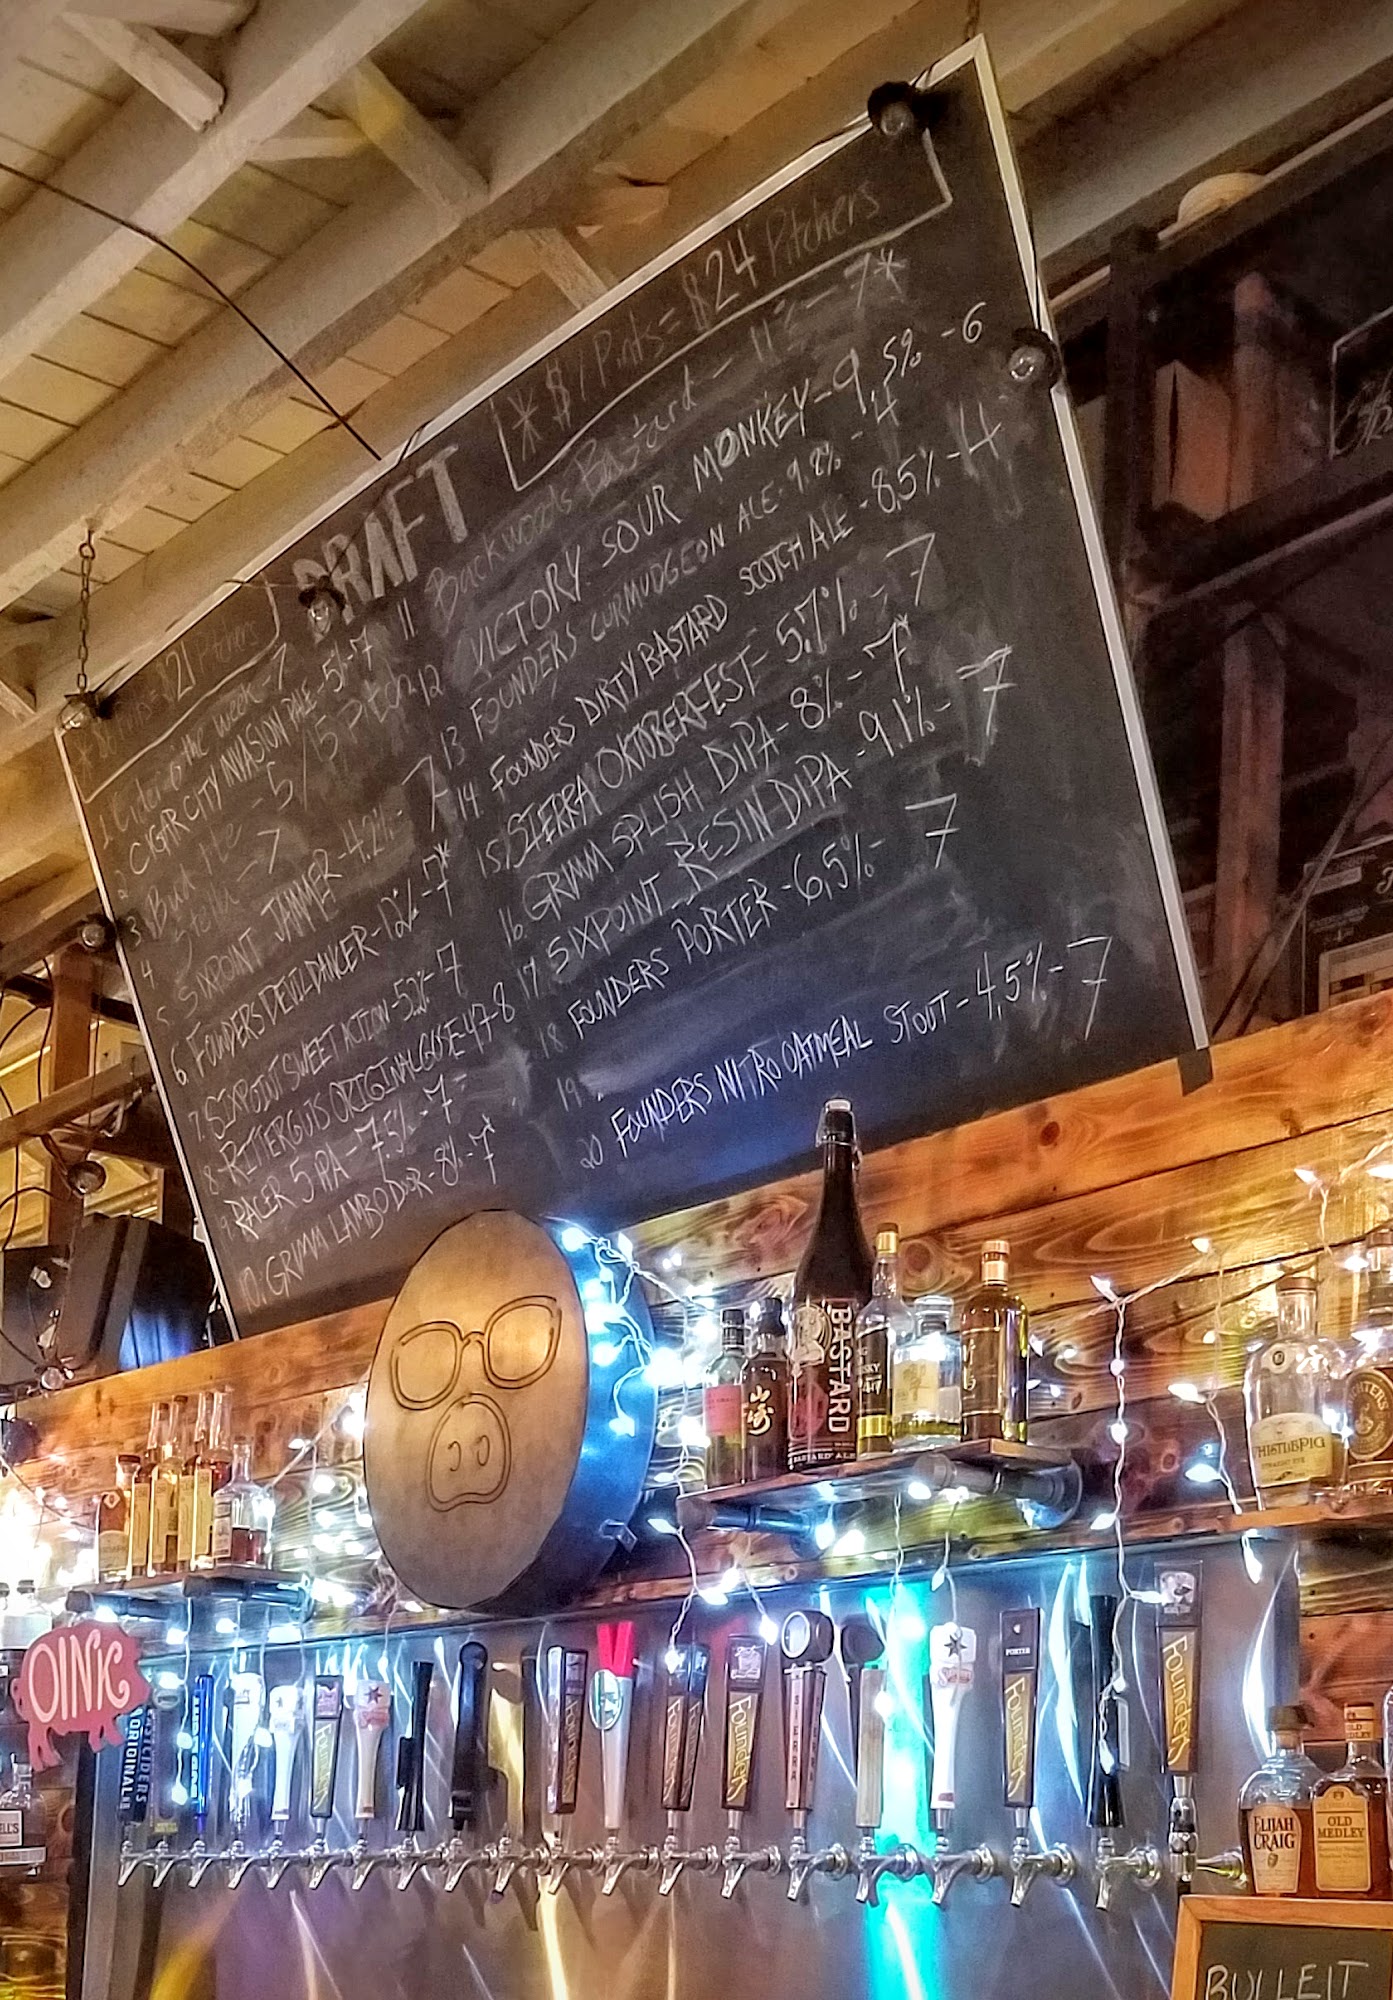 DRAFT
= $21 Pitchers
* $7 Pints = $24 Pitchers
1. Cider of the week - 7
2 CIGAR CITY INVASION PALE - 5% - 7
3 Bud lite - 5/15 Pitcher
4 Stella - 7
5. SIXPOINT JAMMER - 4.2% - 7
6. FOUNDERS DEVIL DANCER - 12% - 7*
7. SIXPOINT SWEET ACTION - 5.2% - 7
8. RITTERGUTS ORIGINAL GOSE - 4.7 - 8
9 RACER 5 IPA - 7.5% - 7
10. GRIMM LAMBO DOOR - 8% - 7*
11 Backwoods Bastard - 11% - 7*
12 VICTORY SOUR MONKEY - 9.5% - 6
13 FOUNDERS CURMUDGEON ALE - 9.8% - 4
14 FOUNDERS DIRTY BASTARD SCOTCH ALE - 8.5% - 4
15. SIERRA OKTOBERFEST - 5.7% - 7
16. GRIMM SPLISH DIPA - 8% - 7*
17 SIXPOINT RESIN DIPA - 9.1% - 7
18 FOUNDERS PORTER - 6.5% - 7
19
20 FOUNDERS NITRO OATMEAL STOUT - 4.5% - 7
BASTARD
WHISTLEPIG
OINK
ORIGINAL
Founders
Founders
Founders
SIERRA
PORTER
Founders
Founders
ELIJAH CRAIG
OLD MEDLEY
BULLEIT